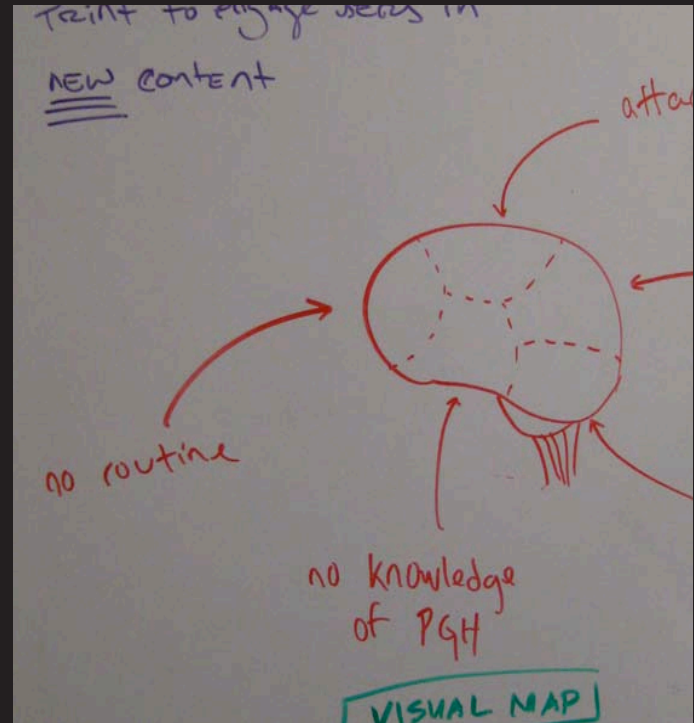 to engage users in
NEW content
no routine
no knowledge
of PGH
VISUAL MAP